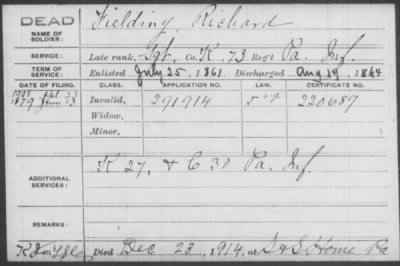 DEAD
NAME OF SOLDIER: Fielding Richard
SERVICE: Late rank, Sgt. Co. K. 73 Reg't Pa. Inf.
TERM OF SERVICE: Enlisted July 25, 1861. Discharged Aug 19, 1864
DATE OF FILING. CLASS. APPLICATION NO. LAW. CERTIFICATE NO.
1879 Invalid, 291914 220687
Widow,
Minor,
ADDITIONAL SERVICES: K 27, & C 38 Pa. Inf.
REMARKS:
Died Dec 23, 1914, at S & S Home Pa